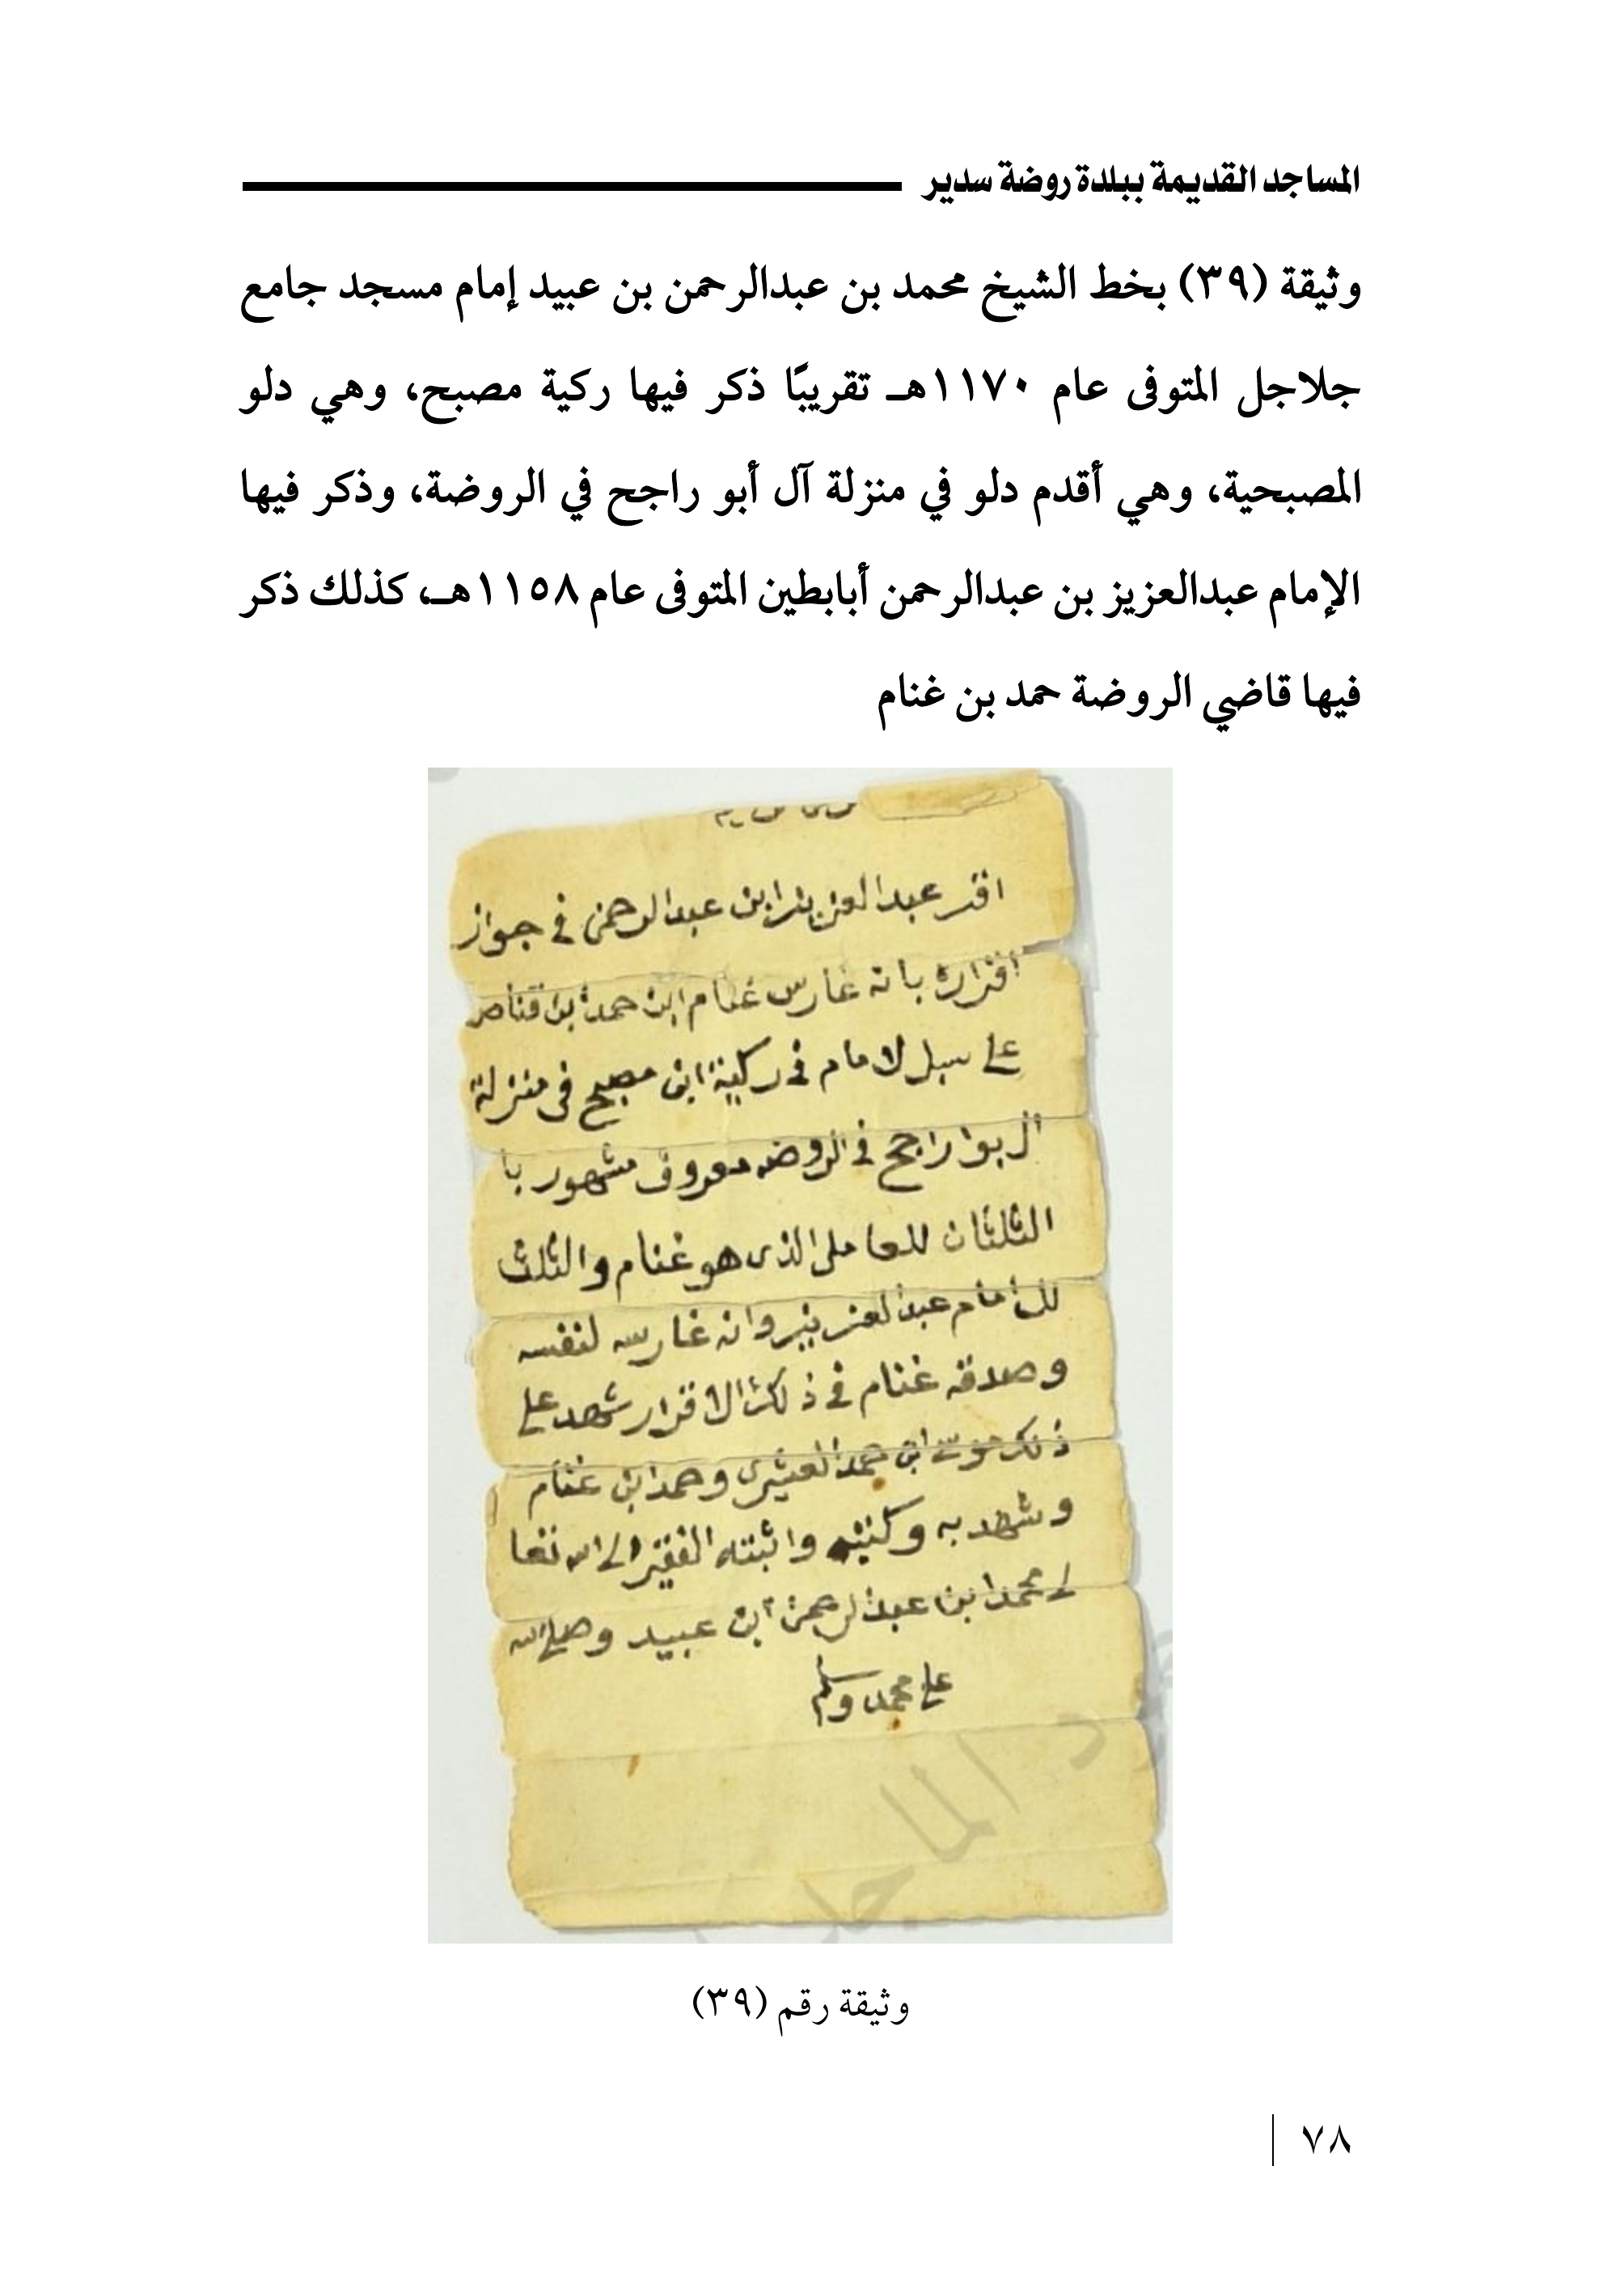 المساجد القديمة ببلدة روضة سدير
وثيقة (٣٩) بخط الشيخ محمد بن عبدالرحمن بن عبيد إمام مسجد جامع
جلاجل المتوفى عام ١١٧٠هـ تقريبًا ذكر فيها ركية مصبح، وهي دلو
المصبحية، وهي أقدم دلو في منزلة آل أبو راجح في الروضة، وذكر فيها
الإمام عبدالعزيز بن عبدالرحمن أبابطين المتوفى عام ١١٥٨هـ، كذلك ذكر
فيها قاضي الروضة حمد بن غنام
اقر عبدالعزيز ابن عبدالرحمن في جواز
اقراره بانه غارس غنام ابن حمد بن قناص
على سبل لامام في ركية ابن مصبح في منزلة
ال بوا راجح في الروضه معروف مشهور با
الثلثان للعامل الذي هو غنام والثلث
للامام عبدالعزيز وانه غارسه لنفسه
وصدقه غنام في ذلك الاقرار شهد على
ذلك موسى ابن حمد العشري وحمد ابن غنام
وشهد به وكتبه واثبته الفقير الى الله تعا
لى محمد ابن عبدالرحمن ابن عبيد وصلى الله
على محمد وسلم
وثيقة رقم (٣٩)
٧٨